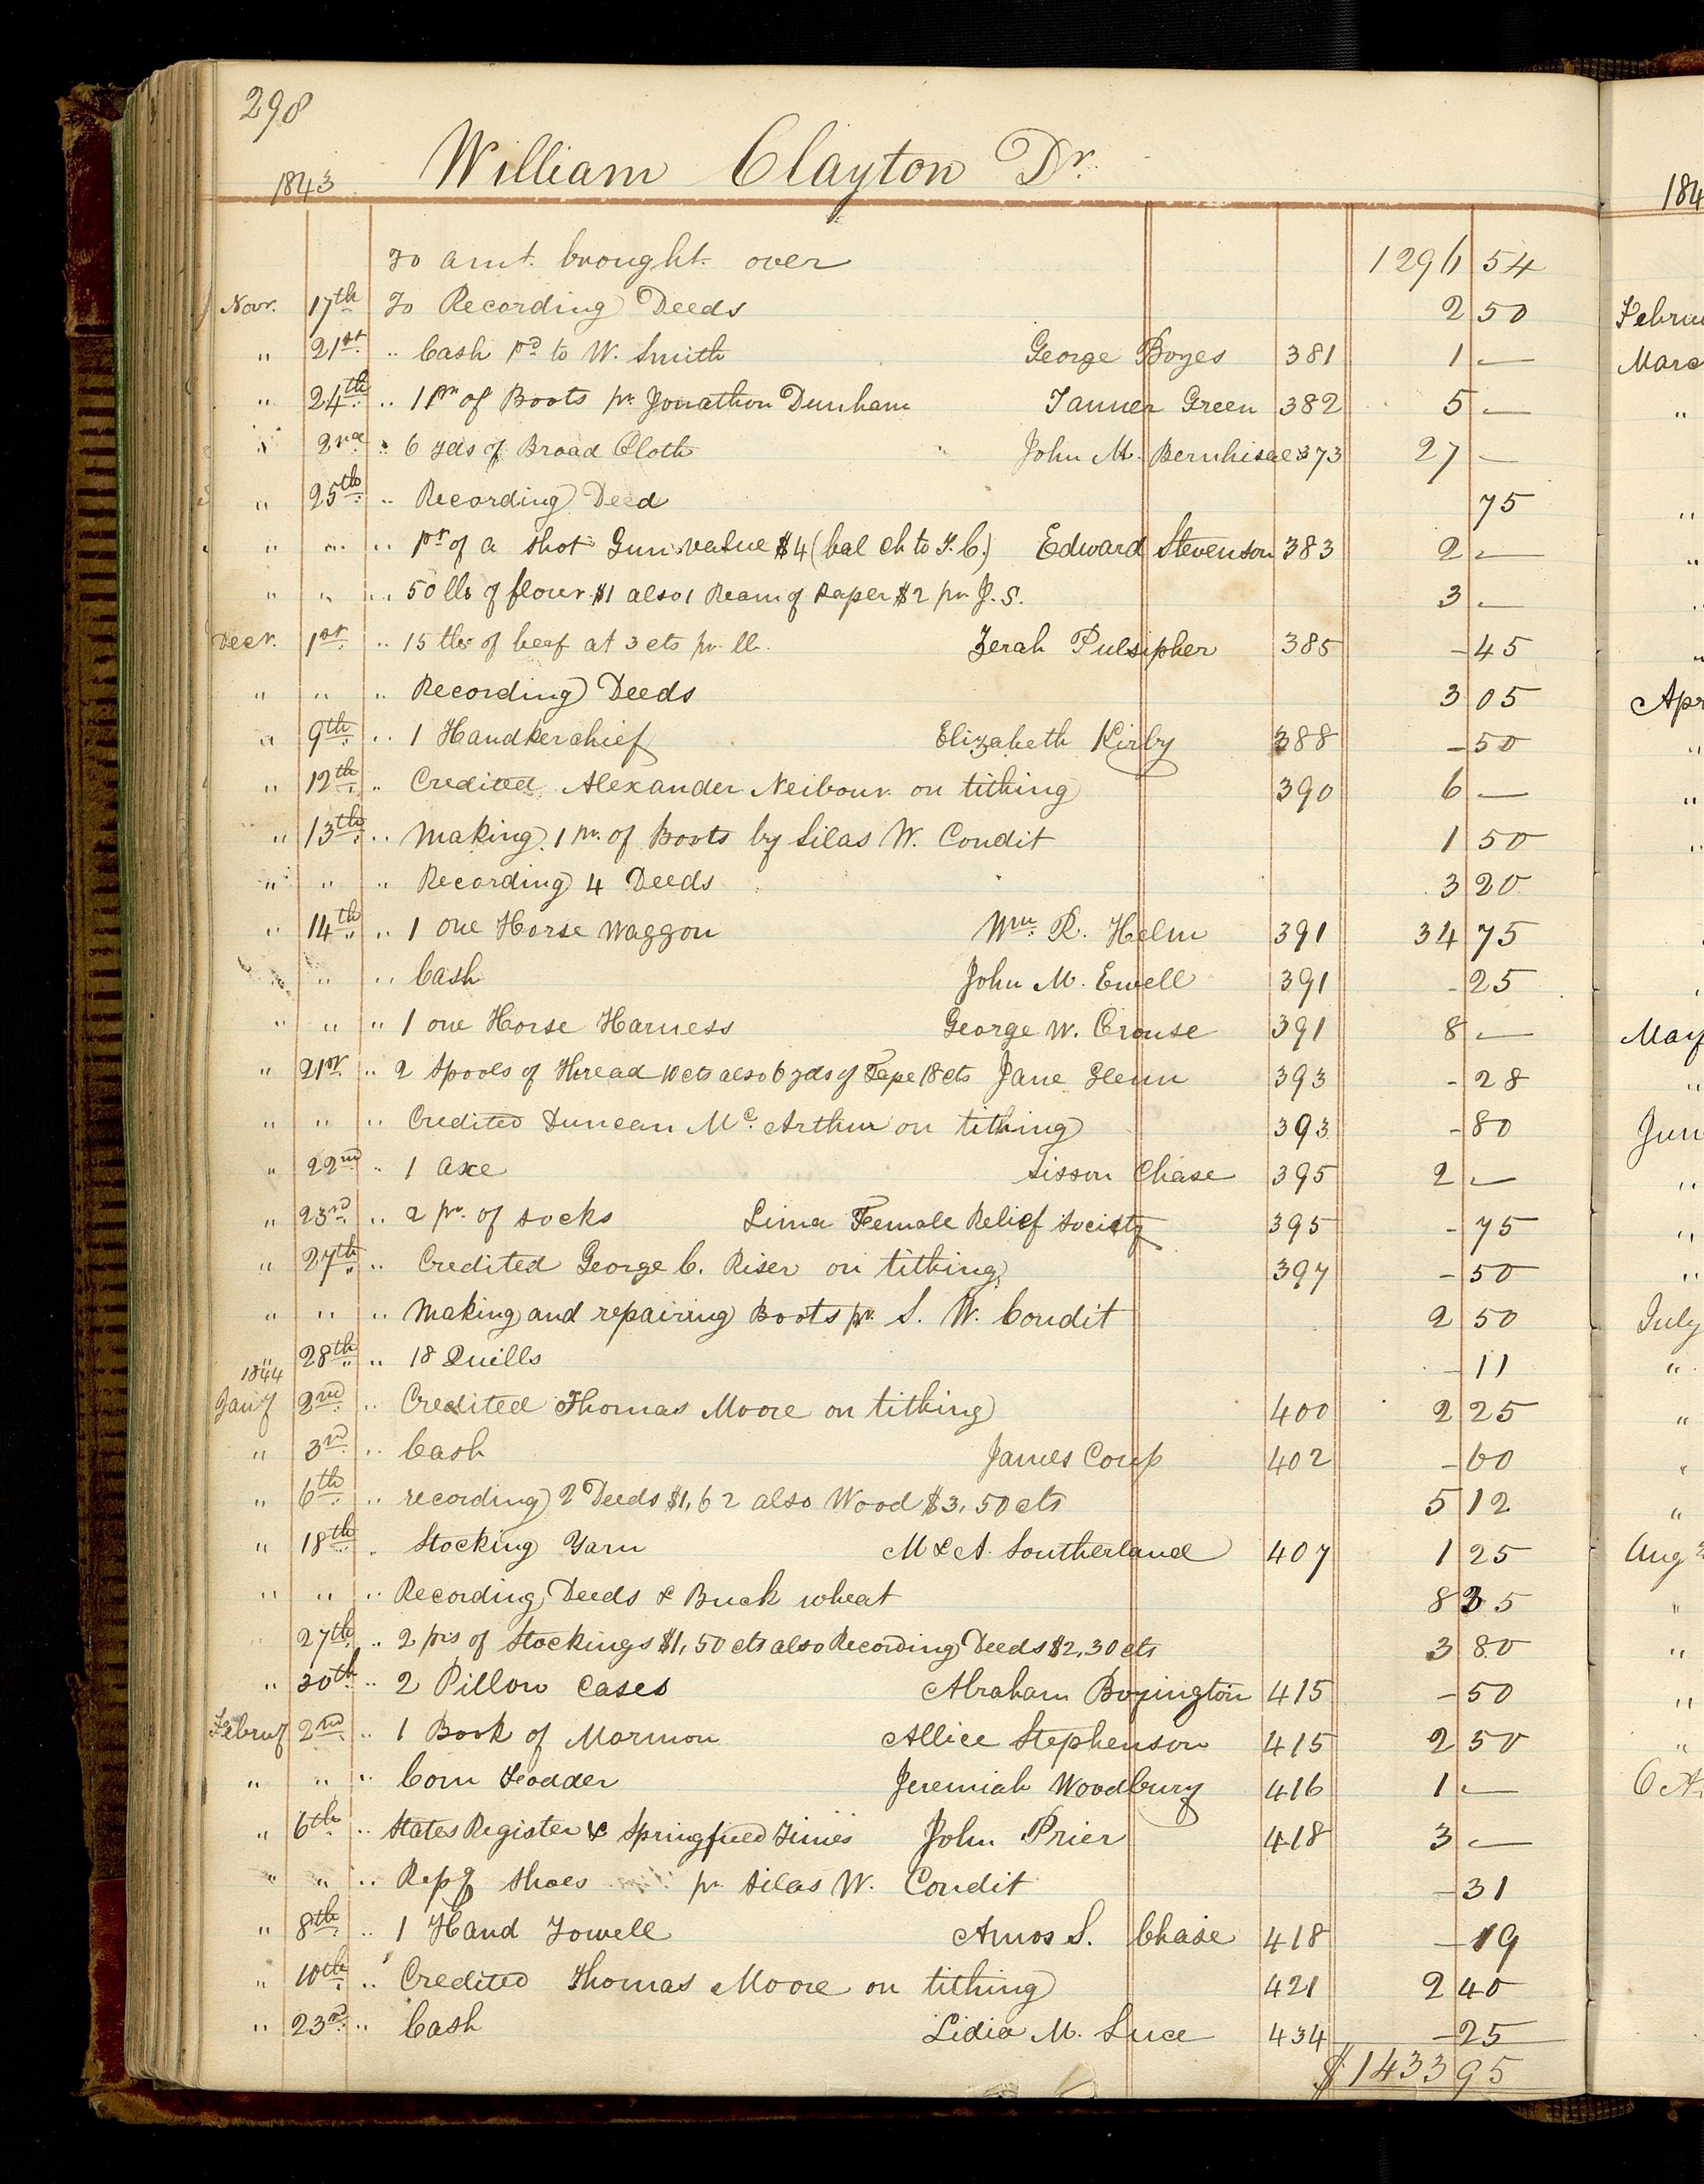 298
1843 William Clayton Dr.
To amt. brought over 1296 54
Novr. 17th To Recording Deeds 2 50
" 21st " Cash pd to W. Smith George Boyes 381 1 —
" 24th " 1 pr of Boots pr Jonathon Dunham Tanner Green 382 5 —
" 2nd " 6 yds of Broad Cloth John M. Bernhisel 373 27 —
" 25th " Recording Deed 75
" " " pr of a shot Gun value $4 (bal ch to T. C.) Edward Stevenson 383 2 —
" " " 50 lbs of flour $1 also 1 Ream of Paper $2 pr J. S. 3 —
Decr. 1st " 15 lbs of beef at 3 cts pr lb. Zerah Pulsipher 385 - 45
" " " Recording Deeds 3 05
" 9th " 1 Handkerchief Elizabeth Kirby 388 - 50
" 12th " Credited Alexander Neibour on tithing 390 6 —
" 13th " Making 1 pr. of Boots by Silas W. Condit 1 50
" " " Recording 4 Deeds 3 20
" 14th " 1 one Horse Waggon Wm. R. Helm 391 34 75
" " " Cash John M. Ewell 391 - 25
" " " 1 one Horse Harness George W. Crouse 391 8 —
" 21st " 2 Spools of Thread 10 cts also 6 yds of Tape 18 cts Jane Glenn 393 - 28
" " " Credited Duncan Mc. Arthur on tithing 393 - 80
" 22nd " 1 axe Sisson Chase 395 2 —
" 23rd " 2 pr. of socks Lima Female Relief Society 395 - 75
" 27th " Credited George C. Riser on tithing 397 - 50
" " " Making and repairing Boots pr. S. W. Condit 2 50
" 28th " 18 Quills - 11
1844
Jany 2nd " Credited Thomas Moore on tithing 400 2 25
" 3rd " Cash James Coup 402 - 60
" 6th " recording 2 Deeds $1,62 also Wood $3,50 cts 5 12
" 18th " Stocking Yarn M & A Southerland 407 1 25
" " " Recording Deeds & Buck wheat 8 35
27th " 2 prs of Stockings $1,50 cts also Recording Deeds $2,30 cts 3 80
" 30th " 2 Pillow Cases Abraham Boyington 415 - 50
Februy 2nd " 1 Book of Mormon Allice Stephenson 415 2 50
" " " Corn Fodder Jeremiah Woodbury 416 1 —
" 6th " States Register & Springfield Times John Prier 418 3 —
" " " Repg shoes pr Silas W. Condit - 31
" 8th " 1 Hand Towell Amos S. Chase 418 - 19
" 10th " Credited Thomas Moore on tithing 421 2 40
" 23rd " Cash Lidia M. Luce 434 - 25
$1433 95
184
Februa
Marc
"
"
"
"
"
Apr
"
"
"
May
"
Jun
"
"
"
July
"
"
"
"
Aug
"
"
"
"